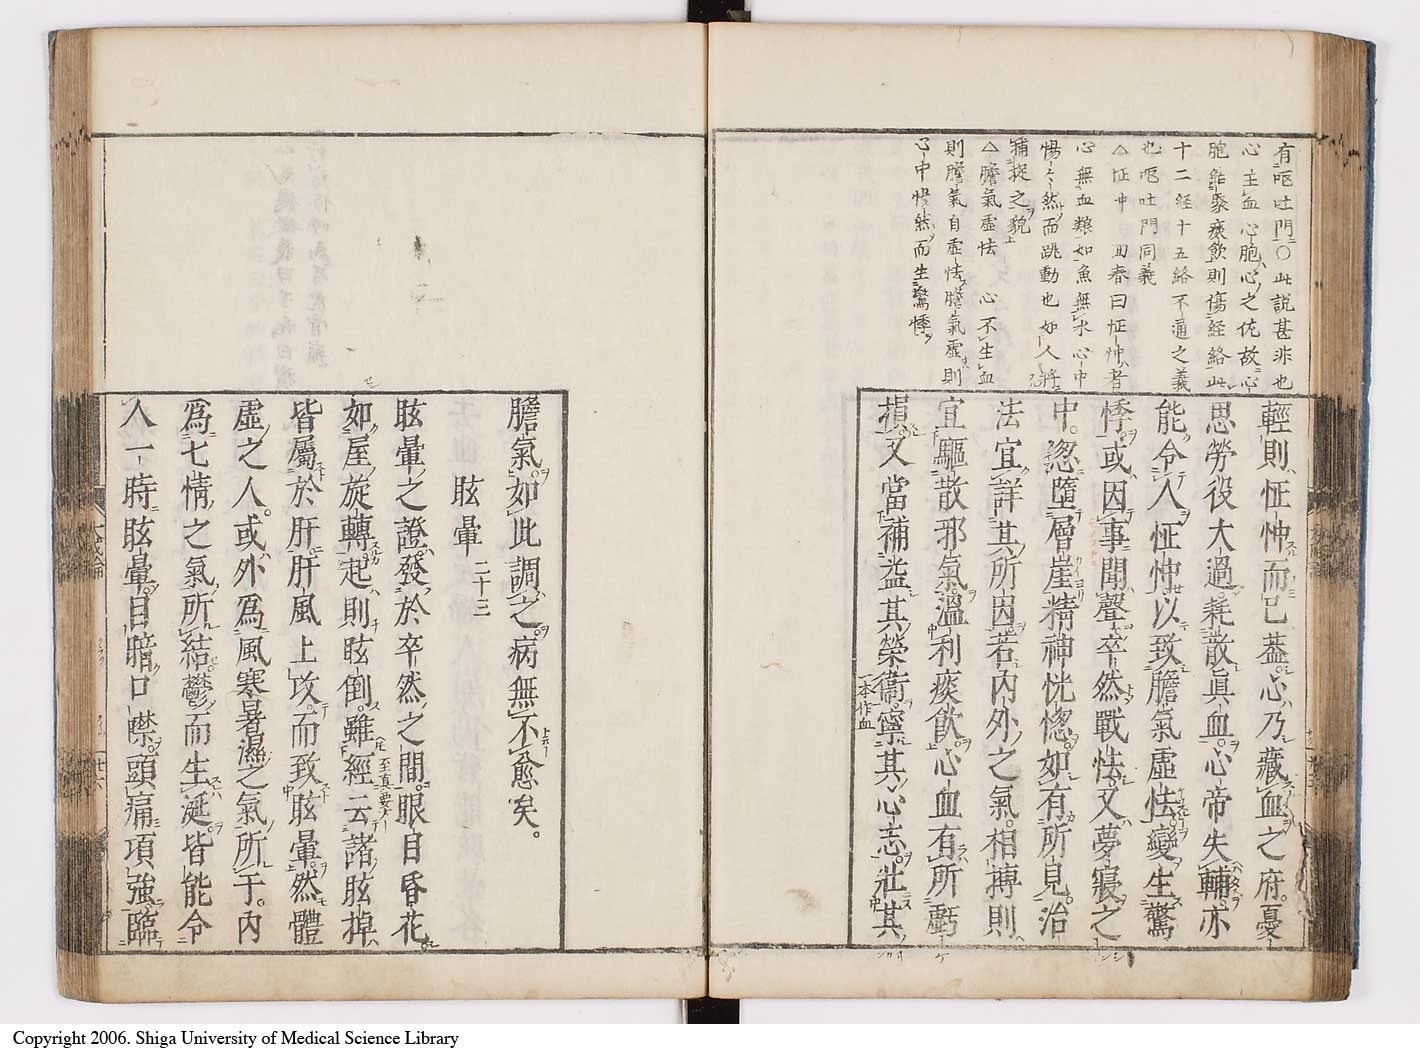 有嘔吐門○此説甚非也
心主血心胞心之佐故心
胞結聚痰飲則傷経絡此
十二経十五絡不通之義
也嘔吐門同義
△怔忡 回春曰怔忡者
心無血粮如魚無水心中
惕々然而跳動也如人将
捕捉之貌
△膽氣虚怯 心不生血
則膽氣自虚怯膽氣虚則
心中惕然而生驚悸
輕則怔忡而已蓋心乃藏血之府憂
思勞役大過耗散眞血心帝失輔亦
能令人怔忡以致膽氣虛怯變生驚
悸或因事聞聲卒然戰怯又夢寢之
中忽墮層崖精神恍惚如有所見治
法宜詳其所因若內外之氣相搏則
宜驅散邪氣溫利痰飮心血有所虧
損又當補益其榮衞寧其心志壯其
一本作血
膽氣如此調之病無不愈矣。
眩暈 二十三
眩暈之證發於卒然之間眼目昏花
如屋旋轉起則眩倒雖經云諸眩掉
皆屬於肝肝風上攻而致眩暈然體
虛之人或外爲風寒暑濕之氣所干內
爲七情之氣所結鬱而生涎皆能令
人一時眩暈目暗口噤頭痛項強臨
Copyright 2006. Shiga University of Medical Science Library